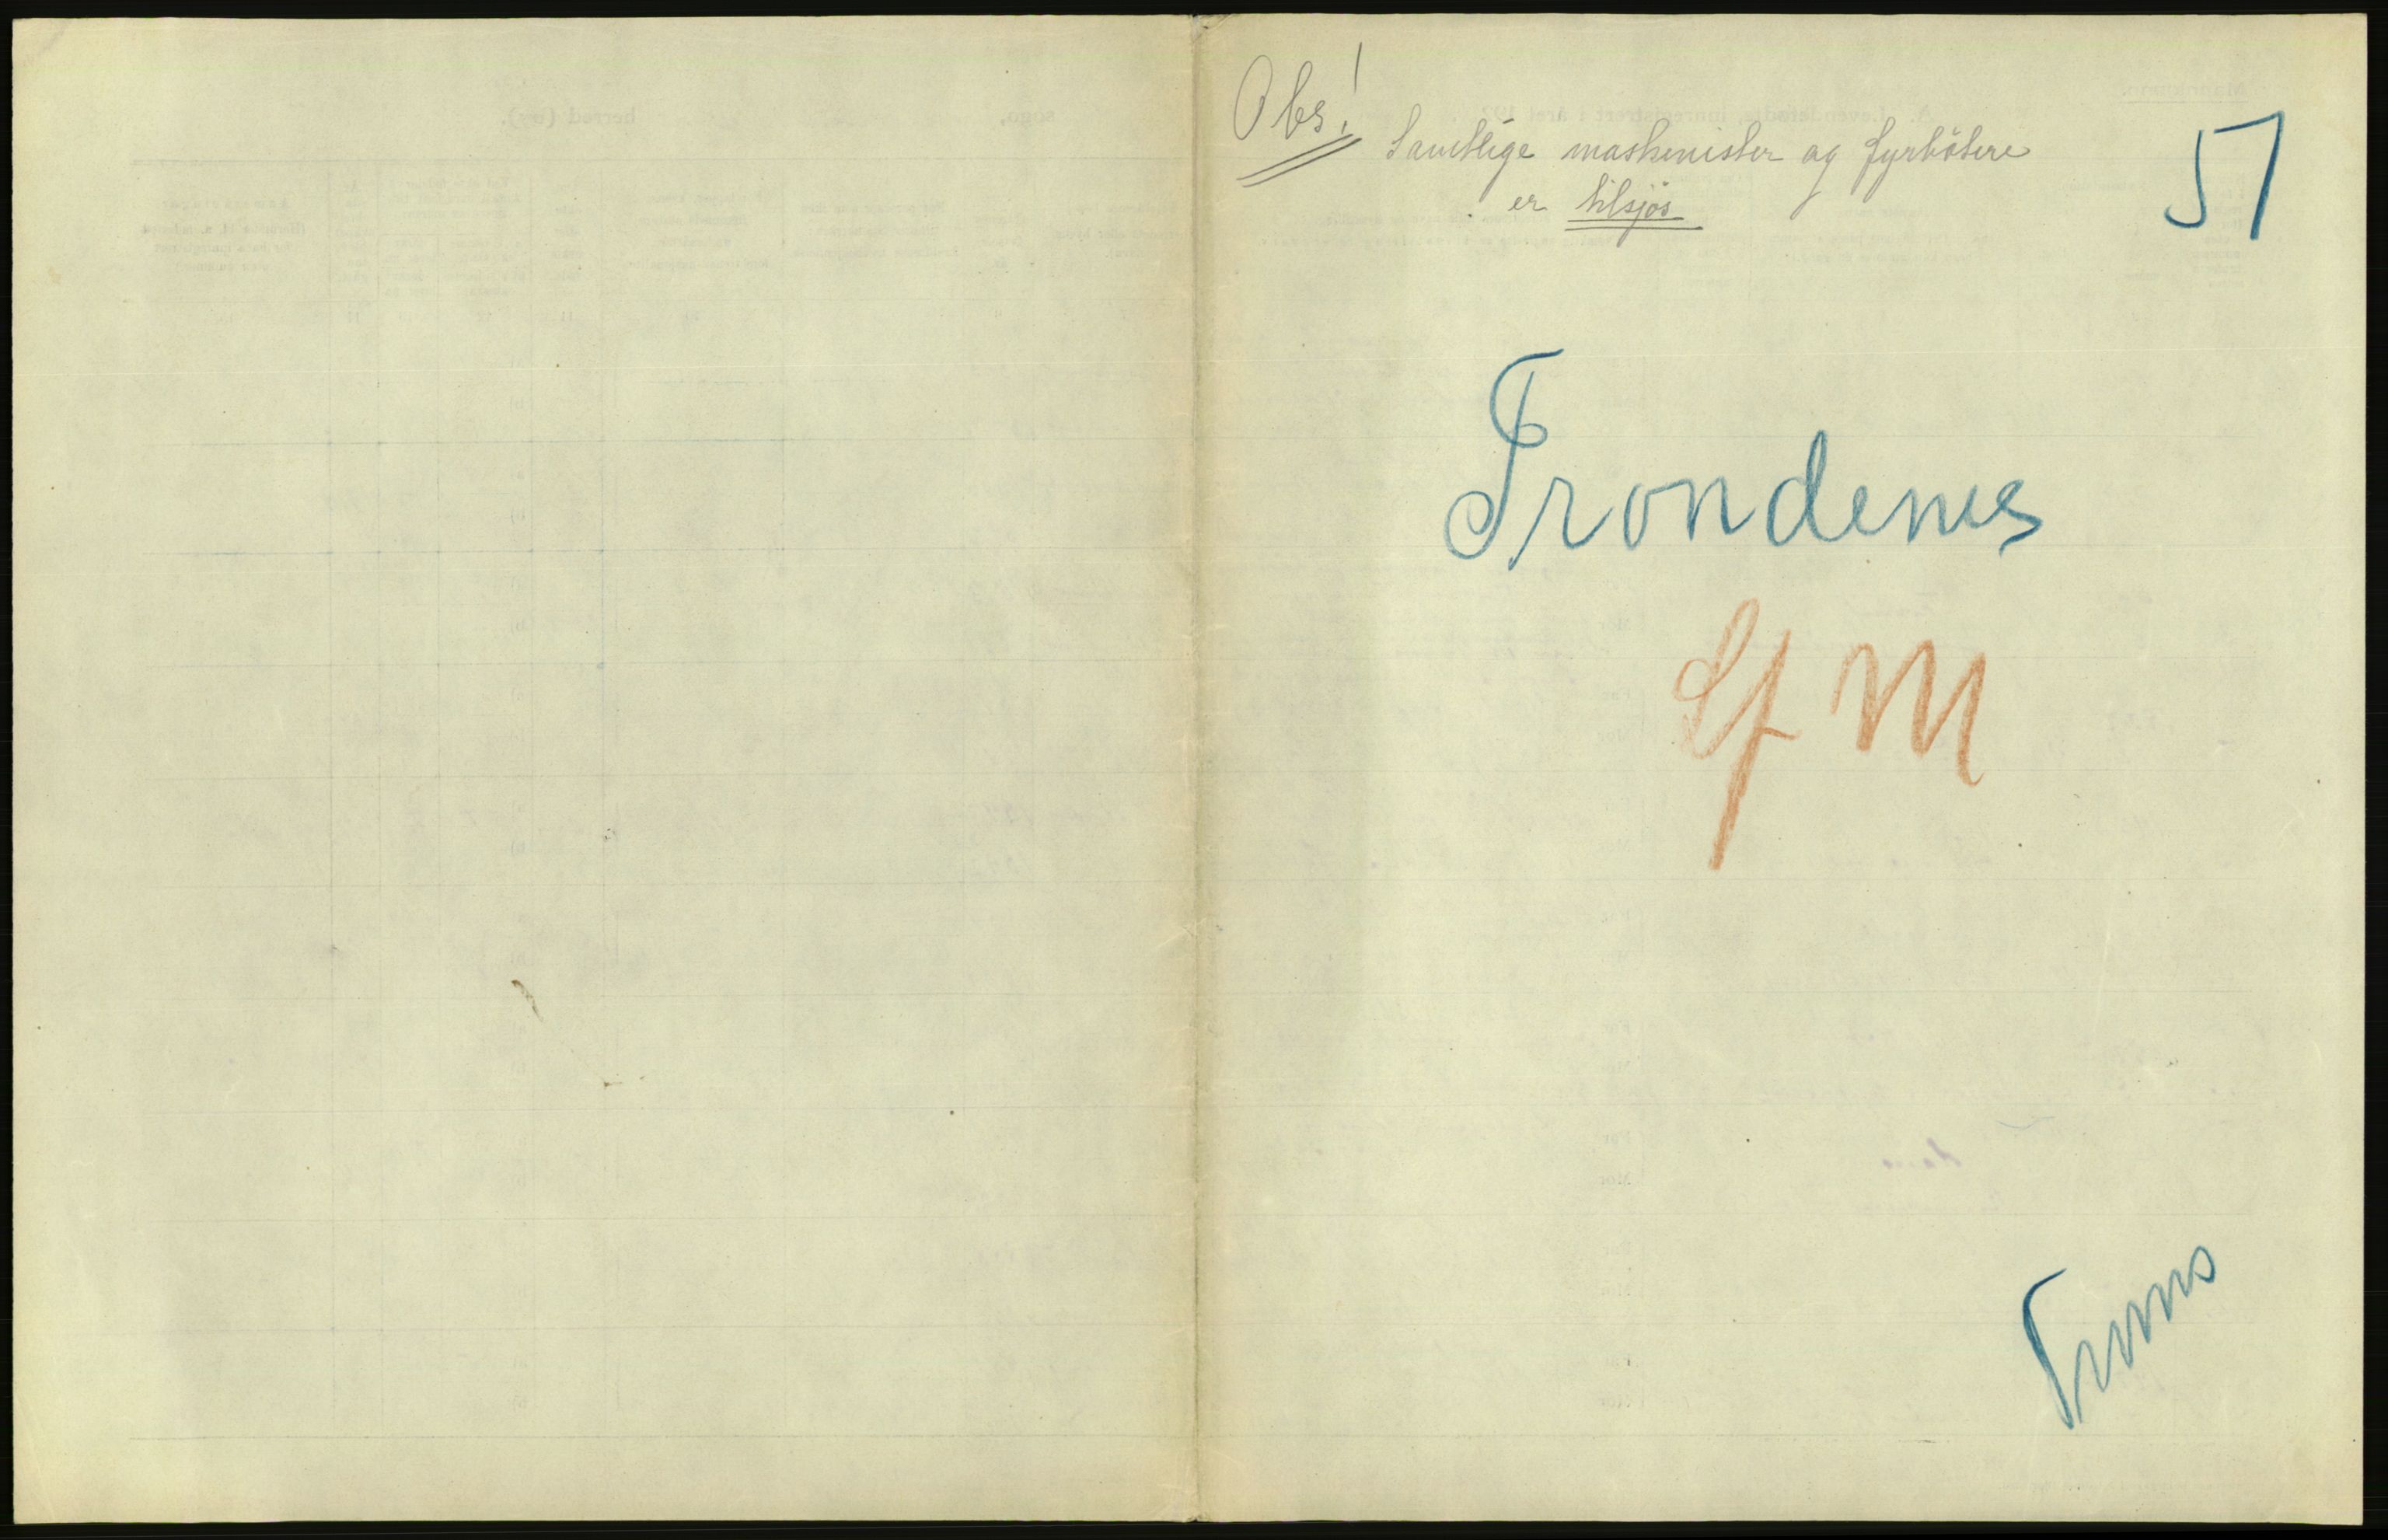 Obs!
Samtlige maskinister og fyrbötere
er tilsjös
51
Trondenes
Lf M
Troms